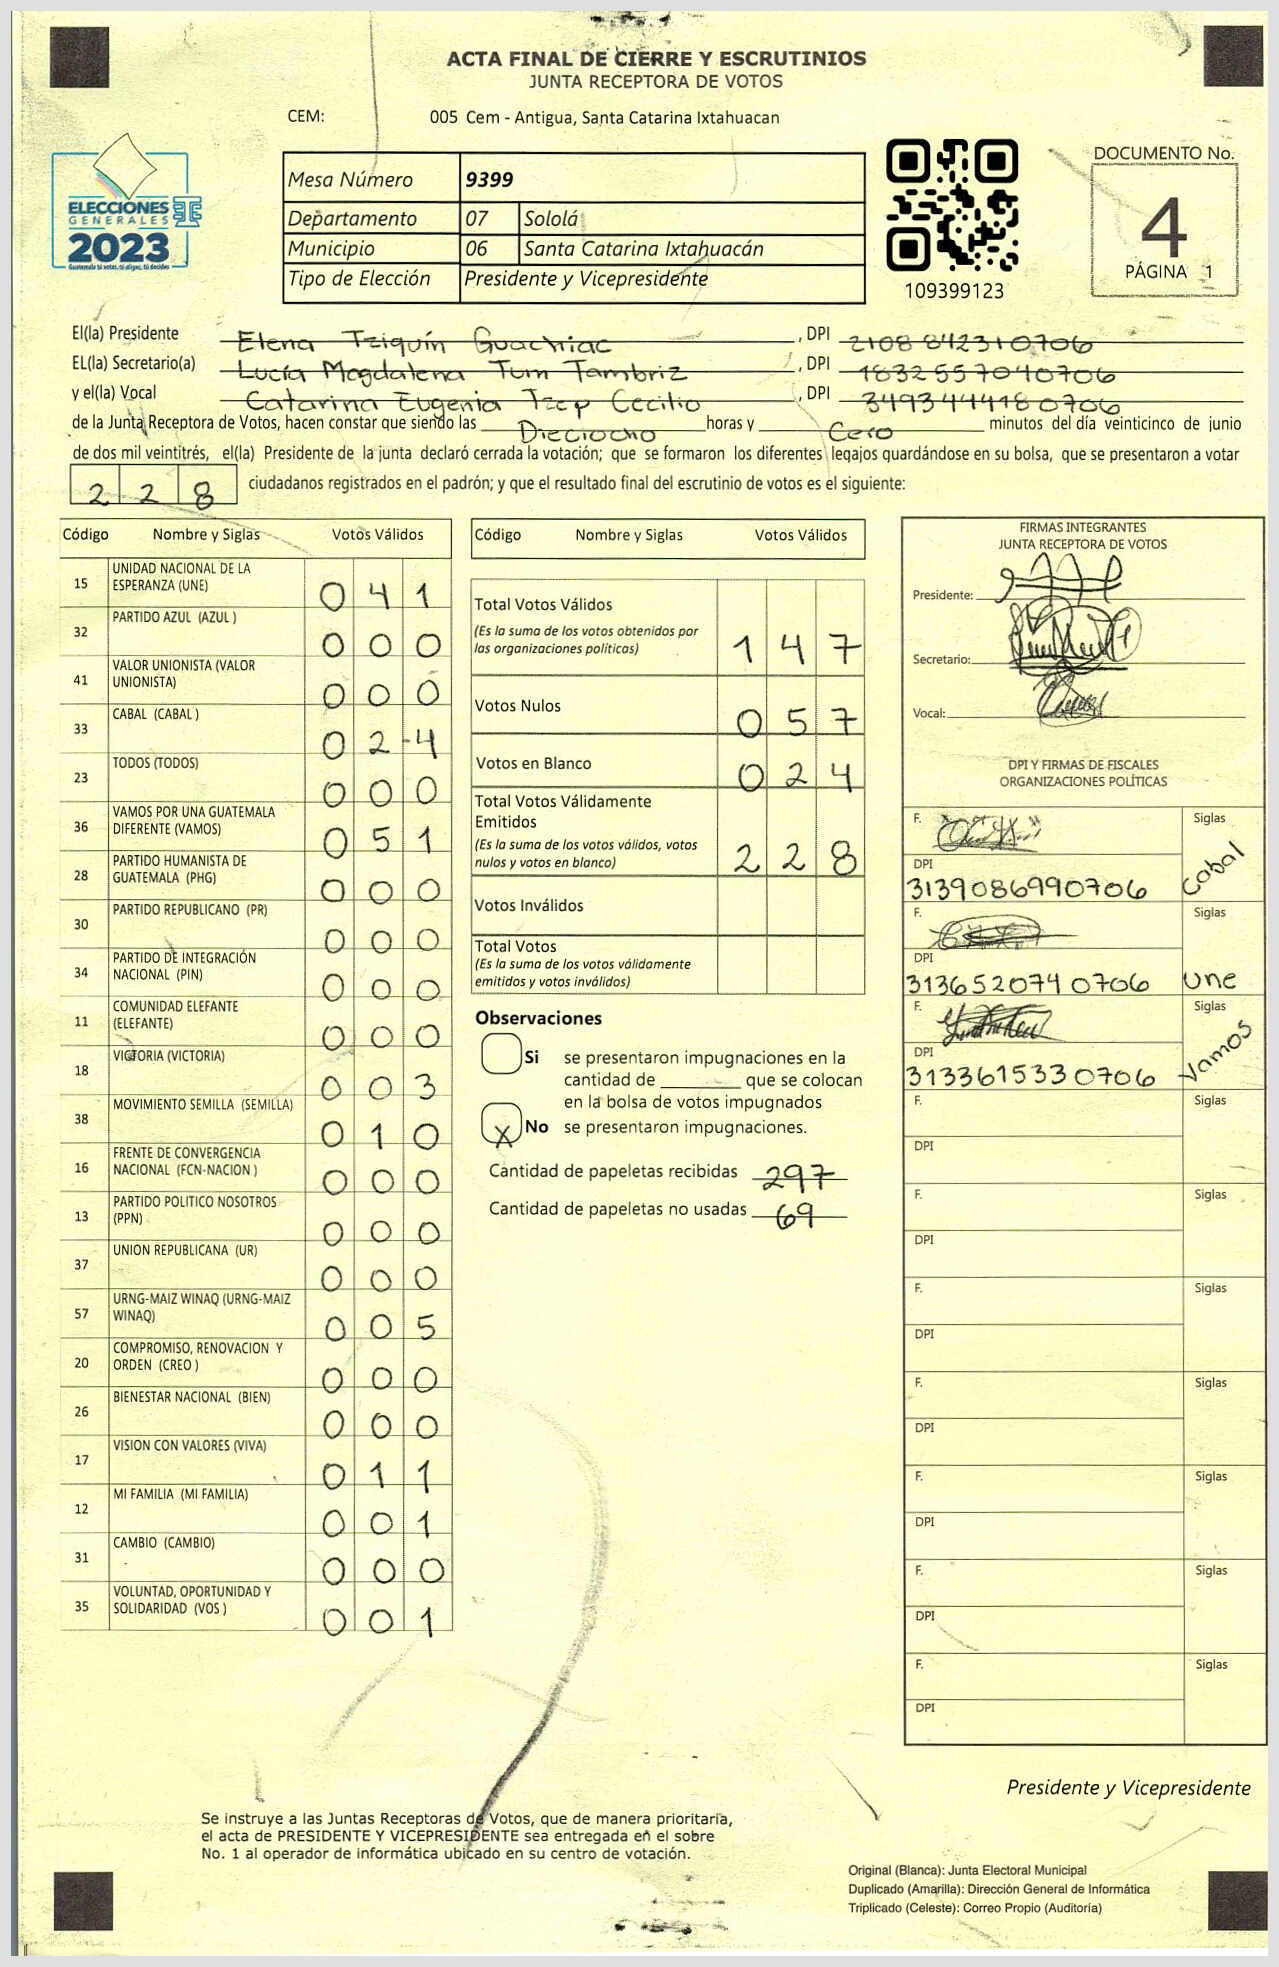 ACTA FINAL DE CIERRE Y ESCRUTINIOS
JUNTA RECEPTORA DE VOTOS
CEM: 005 Cem - Antigua, Santa Catarina Ixtahuacan
ELECCIONES
GENERALES
2023
Guatemala tú votas, tú eliges, tú decides
Mesa Número 9399
Departamento 07 Sololá
Municipio 06 Santa Catarina Ixtahuacán
Tipo de Elección Presidente y Vicepresidente
109399123
DOCUMENTO No.
4
PÁGINA 1
El(la) Presidente Elena Tziquín Guachiac, DPI 2108 84231 0706
EL(la) Secretario(a) Lucía Magdalena Tum Tambriz, DPI 1832 55704 0706
y el(la) Vocal Catarina Eugenia Tzep Cecilio, DPI 3493444180706
de la Junta Receptora de Votos, hacen constar que siendo las Dieciocho horas y Cero minutos del día veinticinco de junio
de dos mil veintitrés, el(la) Presidente de la junta declaró cerrada la votación; que se formaron los diferentes legajos guardándose en su bolsa, que se presentaron a votar
2 2 8 ciudadanos registrados en el padrón; y que el resultado final del escrutinio de votos es el siguiente:
Código Nombre y Siglas Votos Válidos
15 UNIDAD NACIONAL DE LA
ESPERANZA (UNE) 0 4 1
32 PARTIDO AZUL (AZUL ) 0 0 0
41 VALOR UNIONISTA (VALOR
UNIONISTA) 0 0 0
33 CABAL (CABAL ) 0 2 4
23 TODOS (TODOS) 0 0 0
36 VAMOS POR UNA GUATEMALA
DIFERENTE (VAMOS) 0 5 1
28 PARTIDO HUMANISTA DE
GUATEMALA (PHG) 0 0 0
30 PARTIDO REPUBLICANO (PR) 0 0 0
34 PARTIDO DE INTEGRACIÓN
NACIONAL (PIN) 0 0 0
11 COMUNIDAD ELEFANTE
(ELEFANTE) 0 0 0
18 VICTORIA (VICTORIA) 0 0 3
38 MOVIMIENTO SEMILLA (SEMILLA) 0 1 0
16 FRENTE DE CONVERGENCIA
NACIONAL (FCN-NACION ) 0 0 0
13 PARTIDO POLITICO NOSOTROS
(PPN) 0 0 0
37 UNION REPUBLICANA (UR) 0 0 0
57 URNG-MAIZ WINAQ (URNG-MAIZ
WINAQ) 0 0 5
20 COMPROMISO, RENOVACION Y
ORDEN (CREO ) 0 0 0
26 BIENESTAR NACIONAL (BIEN) 0 0 0
17 VISION CON VALORES (VIVA) 0 1 1
12 MI FAMILIA (MI FAMILIA) 0 0 1
31 CAMBIO (CAMBIO) 0 0 0
35 VOLUNTAD, OPORTUNIDAD Y
SOLIDARIDAD (VOS ) 0 0 1
Código Nombre y Siglas Votos Válidos
Total Votos Válidos
(Es la suma de los votos obtenidos por
las organizaciones políticas) 1 4 7
Votos Nulos 0 5 7
Votos en Blanco 0 2 4
Total Votos Válidamente
Emitidos
(Es la suma de los votos válidos, votos
nulos y votos en blanco) 2 2 8
Votos Inválidos
Total Votos
(Es la suma de los votos válidamente
emitidos y votos inválidos)
Observaciones
Si se presentaron impugnaciones en la
cantidad de ________ que se colocan
en la bolsa de votos impugnados
X No se presentaron impugnaciones.
Cantidad de papeletas recibidas 297
Cantidad de papeletas no usadas 69
FIRMAS INTEGRANTES
JUNTA RECEPTORA DE VOTOS
Presidente:
Secretario:
Vocal:
DPI Y FIRMAS DE FISCALES
ORGANIZACIONES POLÍTICAS
F. Siglas
DPI
3139086990706 Cabal
F. Siglas
DPI
3136520740706 Une
F. Siglas
DPI
3133615330706 Vamos
F. Siglas
DPI
F. Siglas
DPI
F. Siglas
DPI
F. Siglas
DPI
F. Siglas
DPI
F. Siglas
DPI
F. Siglas
DPI
Presidente y Vicepresidente
Se instruye a las Juntas Receptoras de Votos, que de manera prioritaria,
el acta de PRESIDENTE Y VICEPRESIDENTE sea entregada en el sobre
No. 1 al operador de informática ubicado en su centro de votación.
Original (Blanca): Junta Electoral Municipal
Duplicado (Amarilla): Dirección General de Informática
Triplicado (Celeste): Correo Propio (Auditoría)